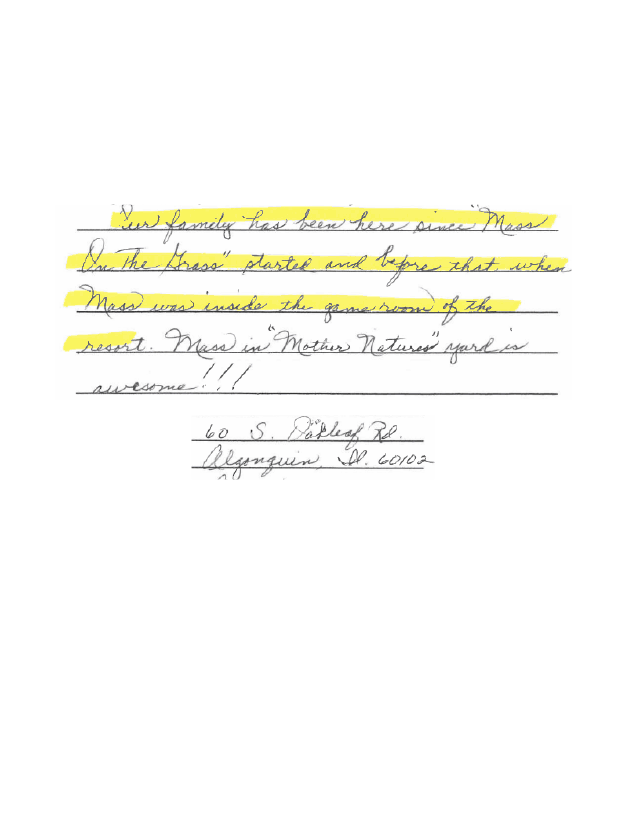 Our family has been here since "Mass
On The Grass" started and before that when
Mass was inside the game room of the
resort. Mass in "Mother Natures" yard is
awesome!!!
60 S. Oakleaf Rd.
Algonquin, Il. 60102